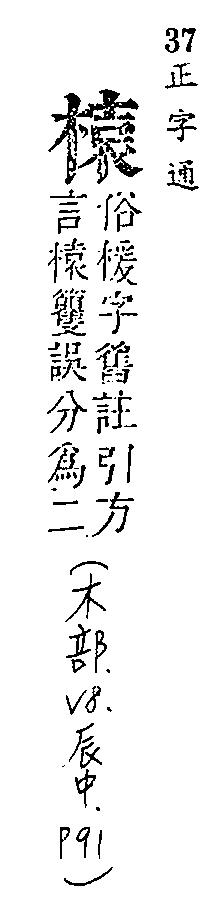 37 正字通
榬
俗楥字舊註引方
言榬籰誤分爲二
(木部. V8. 辰中. P91)